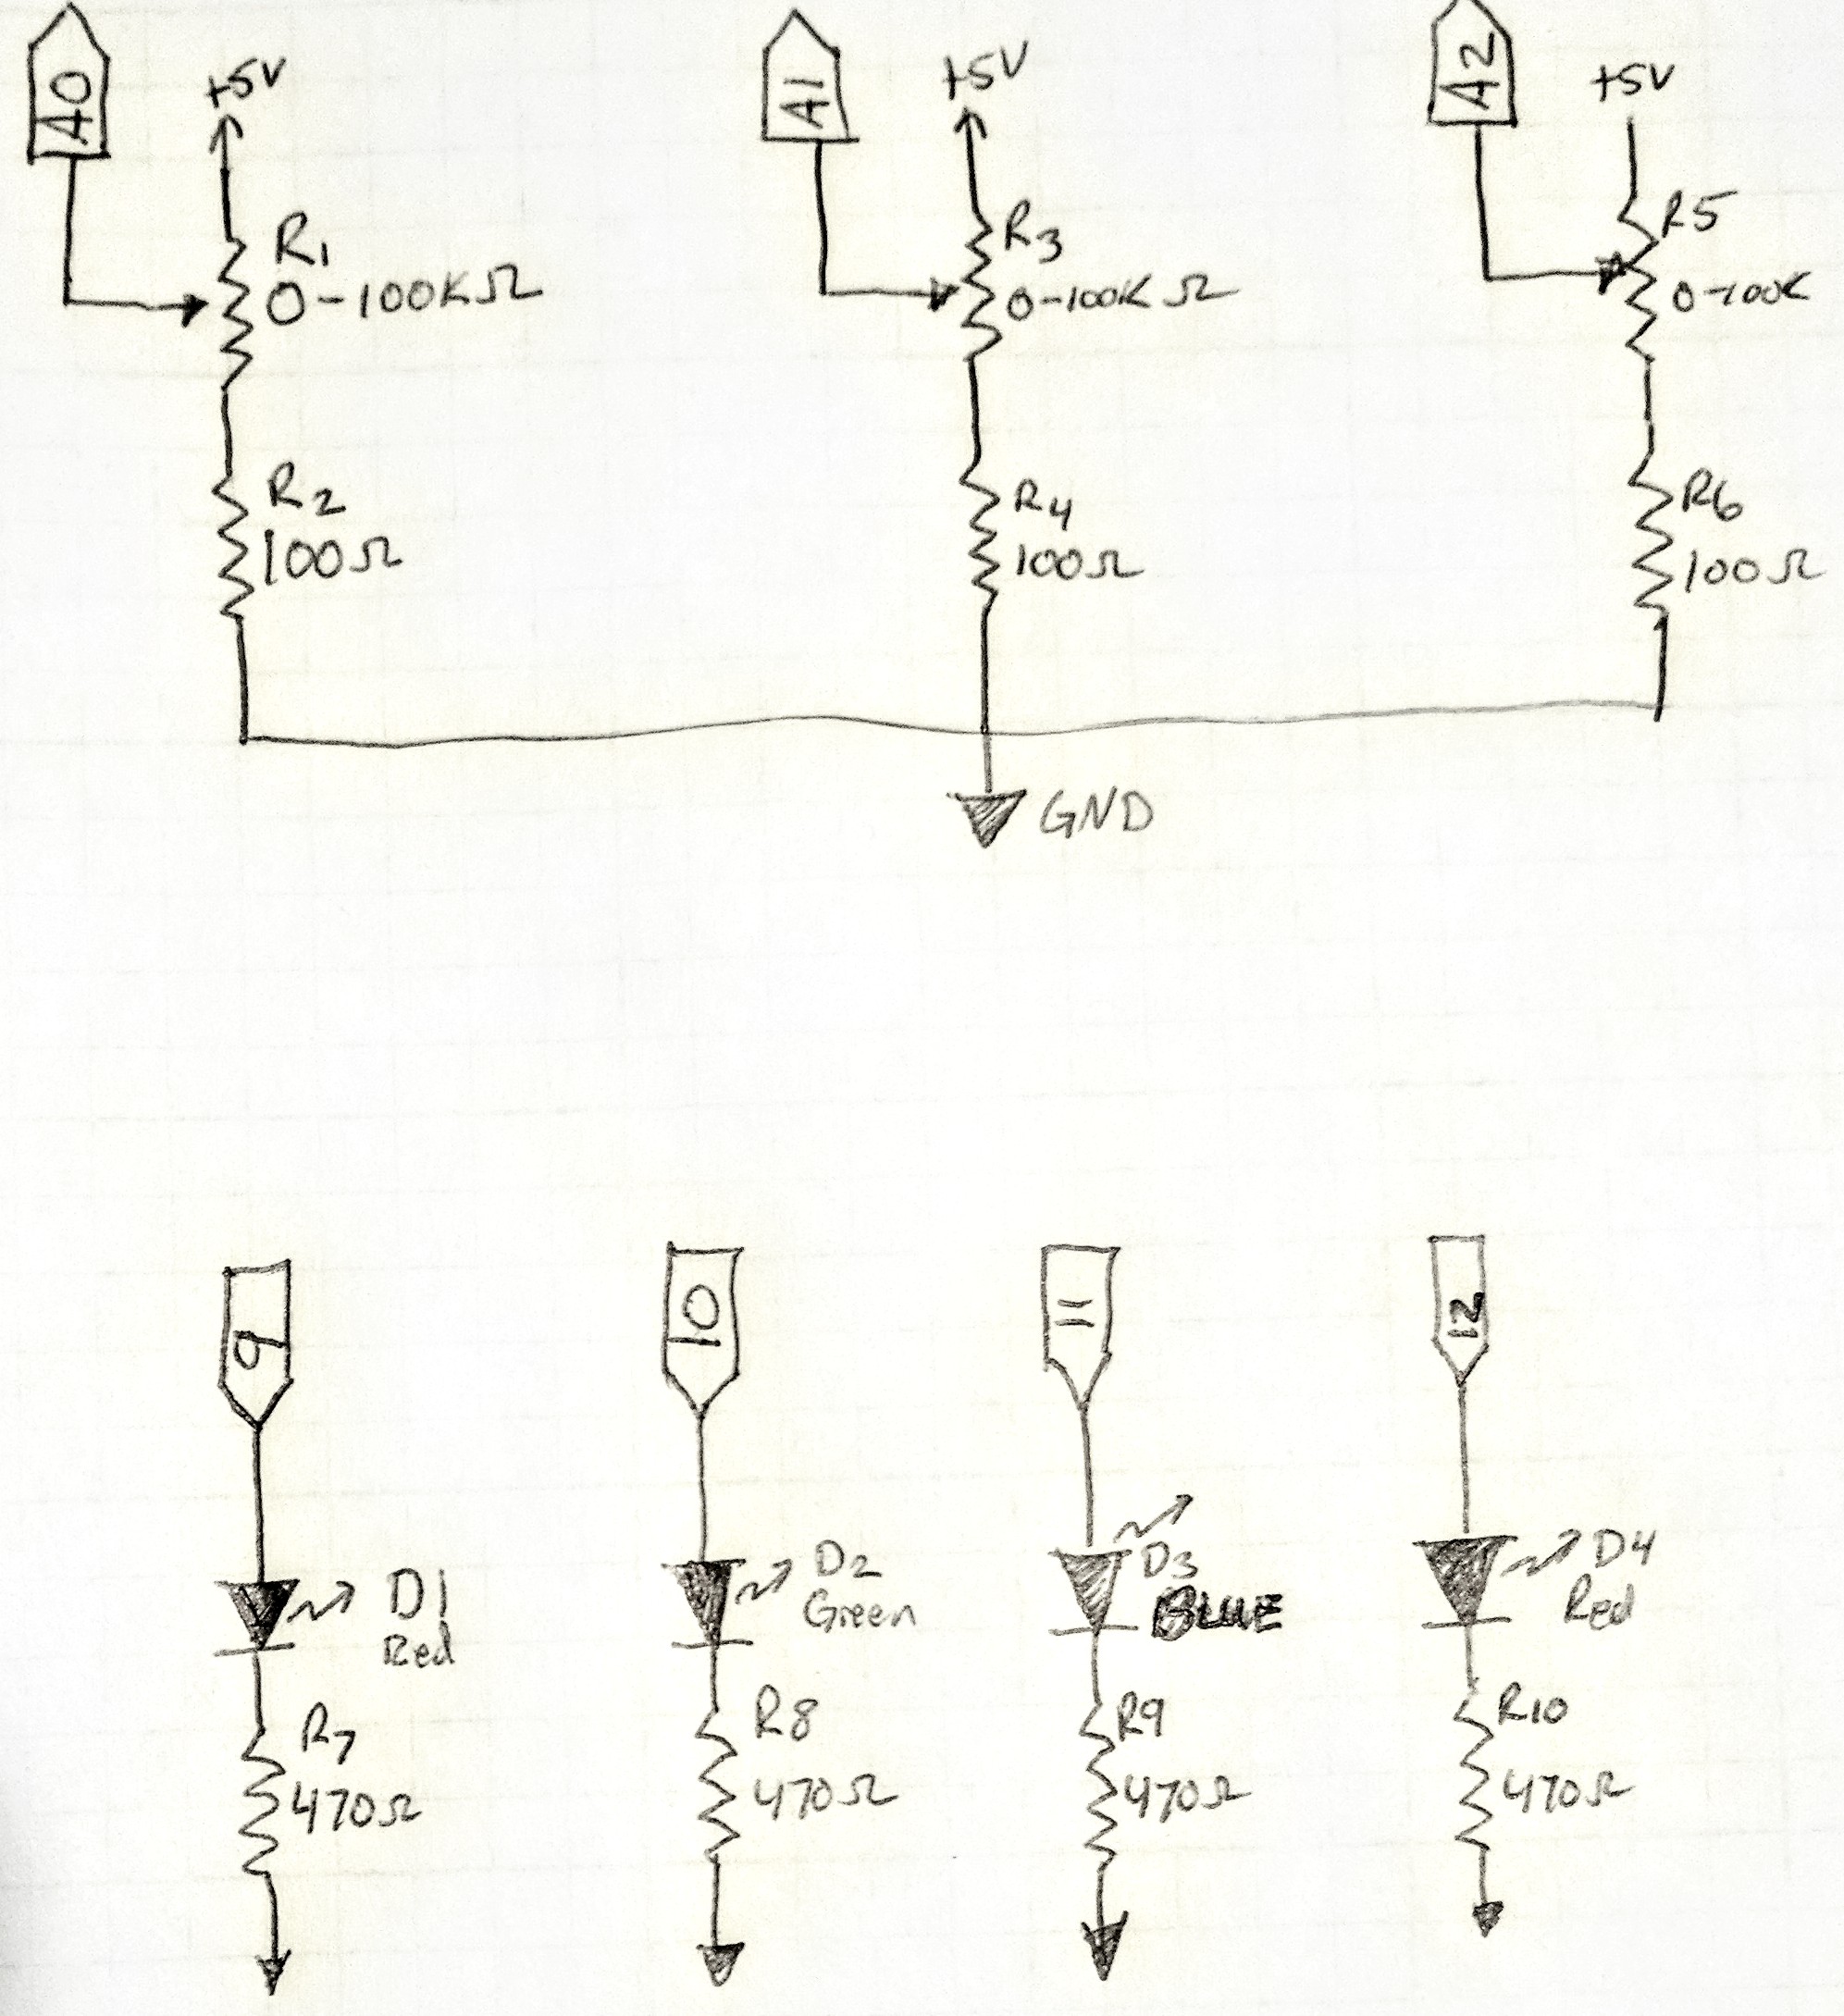 A0
+5V
R1
0-100KΩ
R2
100Ω
A1
+5V
R3
0-100KΩ
R4
100Ω
A2
+5V
R5
0-100K
R6
100Ω
GND
9
D1
Red
R7
470Ω
10
D2
Green
R8
470Ω
11
D3
BLUE
R9
470Ω
12
D4
Red
R10
470Ω